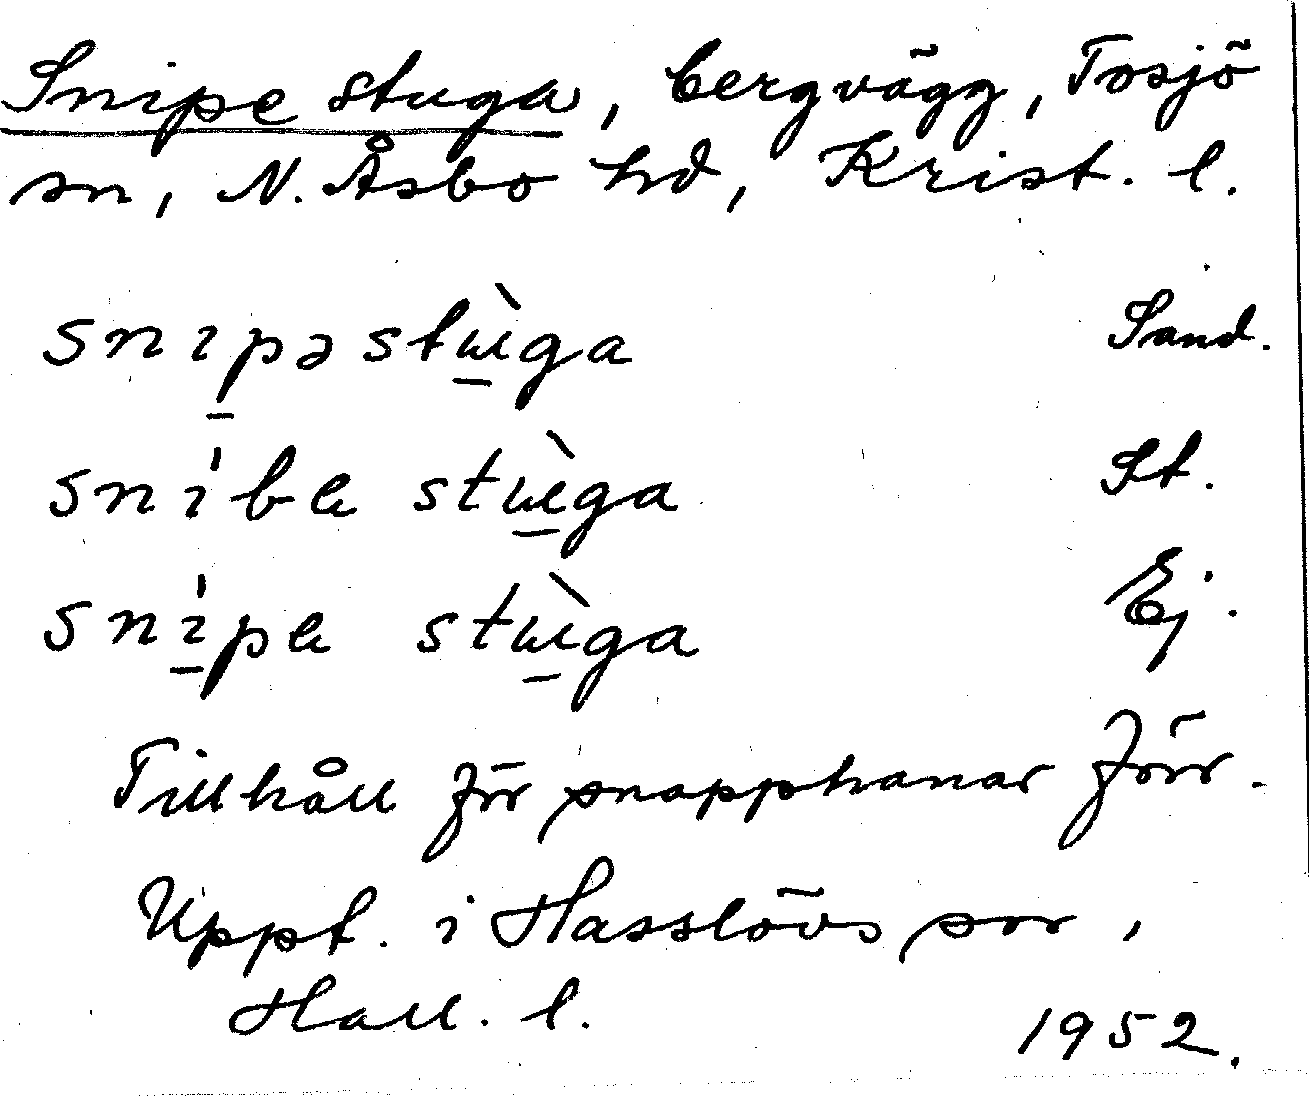 Snipe stuga, bergvägg, Tosjö
sn, N. Åsbo hd, Krist. l.
snıpəstɯ̀ga Sand.
snı̍bɐ stɯ̀ga St.
snı̍pɐ stɯ̀ga Ej.
Tillhåll för snapphanar förr.
Uppt. i Hasslövs sn,
Hall. l. 1952.